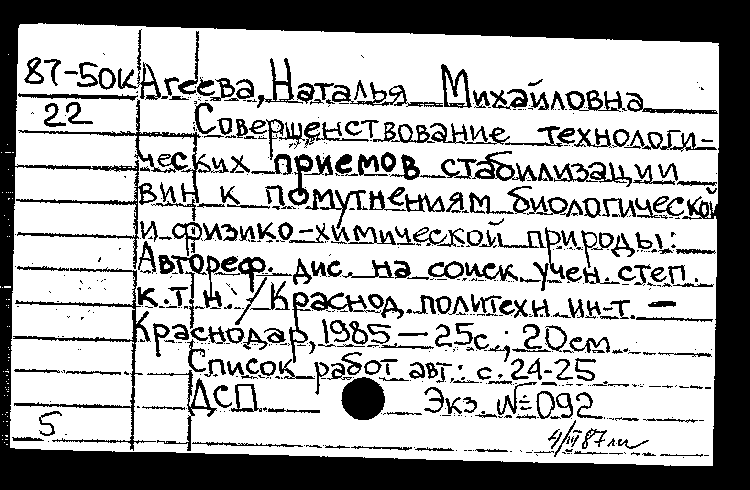 87-50к Агеева, Наталья Михайловна
22 Совершенствование технологи-
ческих приемов стабилизации
вин к помутнениям биологической
и физико-химической природы:
Автореф. дис. на соиск. учен. степ.
к.т.н. / Краснод. политехн. ин-т. —
Краснодар, 1985. — 25с.; 20см.
Список работ авт.: с. 24-25
ДСП Экз. №092
5